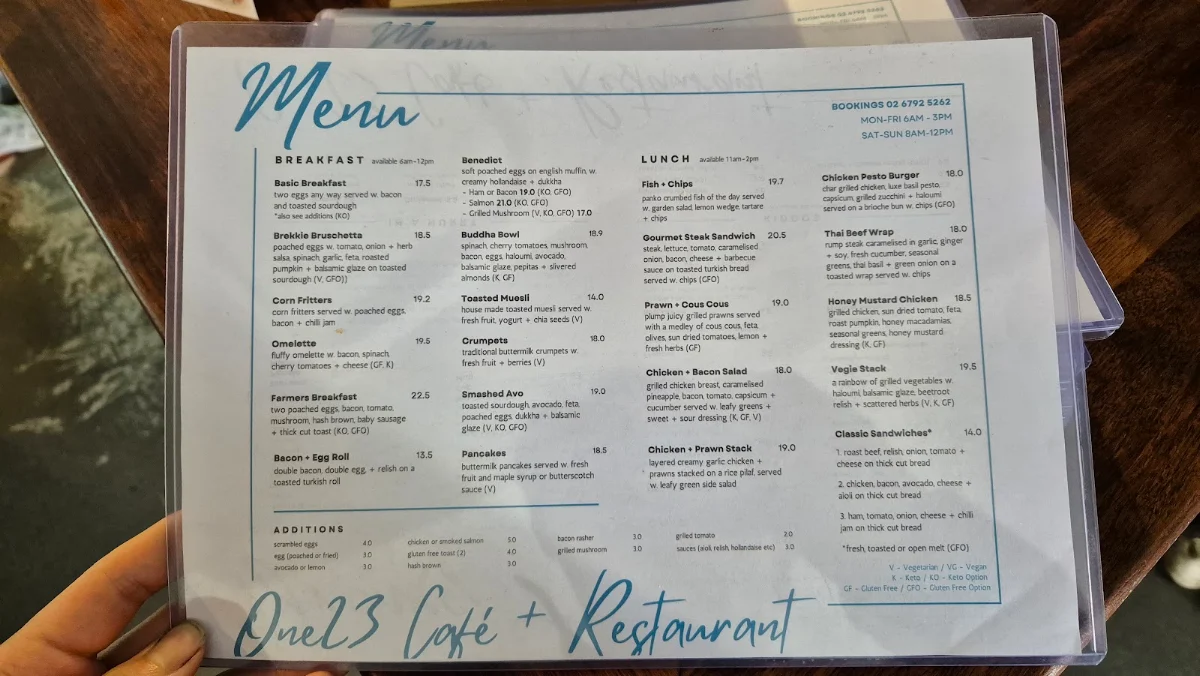 Menu
BOOKINGS 02 6792 5262
MON-FRI 6AM - 3PM
SAT-SUN 8AM-12PM
BREAKFAST available 6am-12pm
Basic Breakfast 17.5
two eggs any way served w. bacon
and toasted sourdough
*also see additions (KO)
Brekkie Bruschetta 18.5
poached eggs w. tomato, onion + herb
salsa, spinach, garlic, feta, roasted
pumpkin + balsamic glaze on toasted
sourdough (V, GFO))
Corn Fritters 19.2
corn fritters served w. poached eggs,
bacon + chilli jam
Omelette 19.5
fluffy omelette w. bacon, spinach,
cherry tomatoes + cheese (GF, K)
Farmers Breakfast 22.5
two poached eggs, bacon, tomato,
mushroom, hash brown, baby sausage
+ thick cut toast (KO, GFO)
Bacon + Egg Roll 13.5
double bacon, double egg, + relish on a
toasted turkish roll
Benedict
soft poached eggs on english muffin, w.
creamy hollandaise + dukkha
- Ham or Bacon 19.0 (KO, GFO)
- Salmon 21.0 (KO, GFO)
- Grilled Mushroom (V, KO, GFO) 17.0
Buddha Bowl 18.9
spinach, cherry tomatoes, mushroom,
bacon, eggs, haloumi, avocado,
balsamic glaze, pepitas + slivered
almonds (K, GF)
Toasted Muesli 14.0
house made toasted muesli served w.
fresh fruit, yogurt + chia seeds (V)
Crumpets 18.0
traditional buttermilk crumpets w.
fresh fruit + berries (V)
Smashed Avo 19.0
toasted sourdough, avocado, feta,
poached eggs, dukkha + balsamic
glaze (V, KO, GFO)
Pancakes 18.5
buttermilk pancakes served w. fresh
fruit and maple syrup or butterscotch
sauce (V)
LUNCH available 11am-2pm
Fish + Chips 19.7
panko crumbed fish of the day served
w. garden salad, lemon wedge, tartare
+ chips
Gourmet Steak Sandwich 20.5
steak, lettuce, tomato, caramelised
onion, bacon, cheese + barbecue
sauce on toasted turkish bread
served w. chips (GFO)
Prawn + Cous Cous 19.0
plump juicy grilled prawns served
with a medley of cous cous, feta,
olives, sun dried tomatoes, lemon +
fresh herbs (GF)
Chicken + Bacon Salad 18.0
grilled chicken breast, caramelised
pineapple, bacon, tomato, capsicum +
cucumber served w. leafy greens +
sweet + sour dressing (K, GF, V)
Chicken + Prawn Stack 19.0
layered creamy garlic chicken +
prawns stacked on a rice pilaf, served
w. leafy green side salad
Chicken Pesto Burger 18.0
char grilled chicken, luxe basil pesto,
capsicum, grilled zucchini + haloumi
served on a brioche bun w. chips (GFO)
Thai Beef Wrap 18.0
rump steak caramelised in garlic, ginger
+ soy, fresh cucumber, seasonal
greens, thai basil + green onion on a
toasted wrap served w. chips
Honey Mustard Chicken 18.5
grilled chicken, sun dried tomato, feta,
roast pumpkin, honey macadamias,
seasonal greens, honey mustard
dressing (K, GF)
Vegie Stack 19.5
a rainbow of grilled vegetables w.
haloumi, balsamic glaze, beetroot
relish + scattered herbs (V, K, GF)
Classic Sandwiches* 14.0
1. roast beef, relish, onion, tomato +
cheese on thick cut bread
2. chicken, bacon, avocado, cheese +
aioli on thick cut bread
3. ham, tomato, onion, cheese + chilli
jam on thick cut bread
*fresh, toasted or open melt (GFO)
ADDITIONS
scrambled eggs 4.0
egg (poached or fried) 3.0
avocado or lemon 3.0
chicken or smoked salmon 5.0
gluten free toast (2) 4.0
hash brown 3.0
bacon rasher 3.0
grilled mushroom 3.0
grilled tomato 2.0
sauces (aioli, relish, hollandaise etc) 3.0
V - Vegetarian / VG - Vegan
K - Keto / KO - Keto Option
GF - Gluten Free / GFO - Gluten Free Option
One23 Café + Restaurant
Menu
BOOKINGS 02 6792 5262